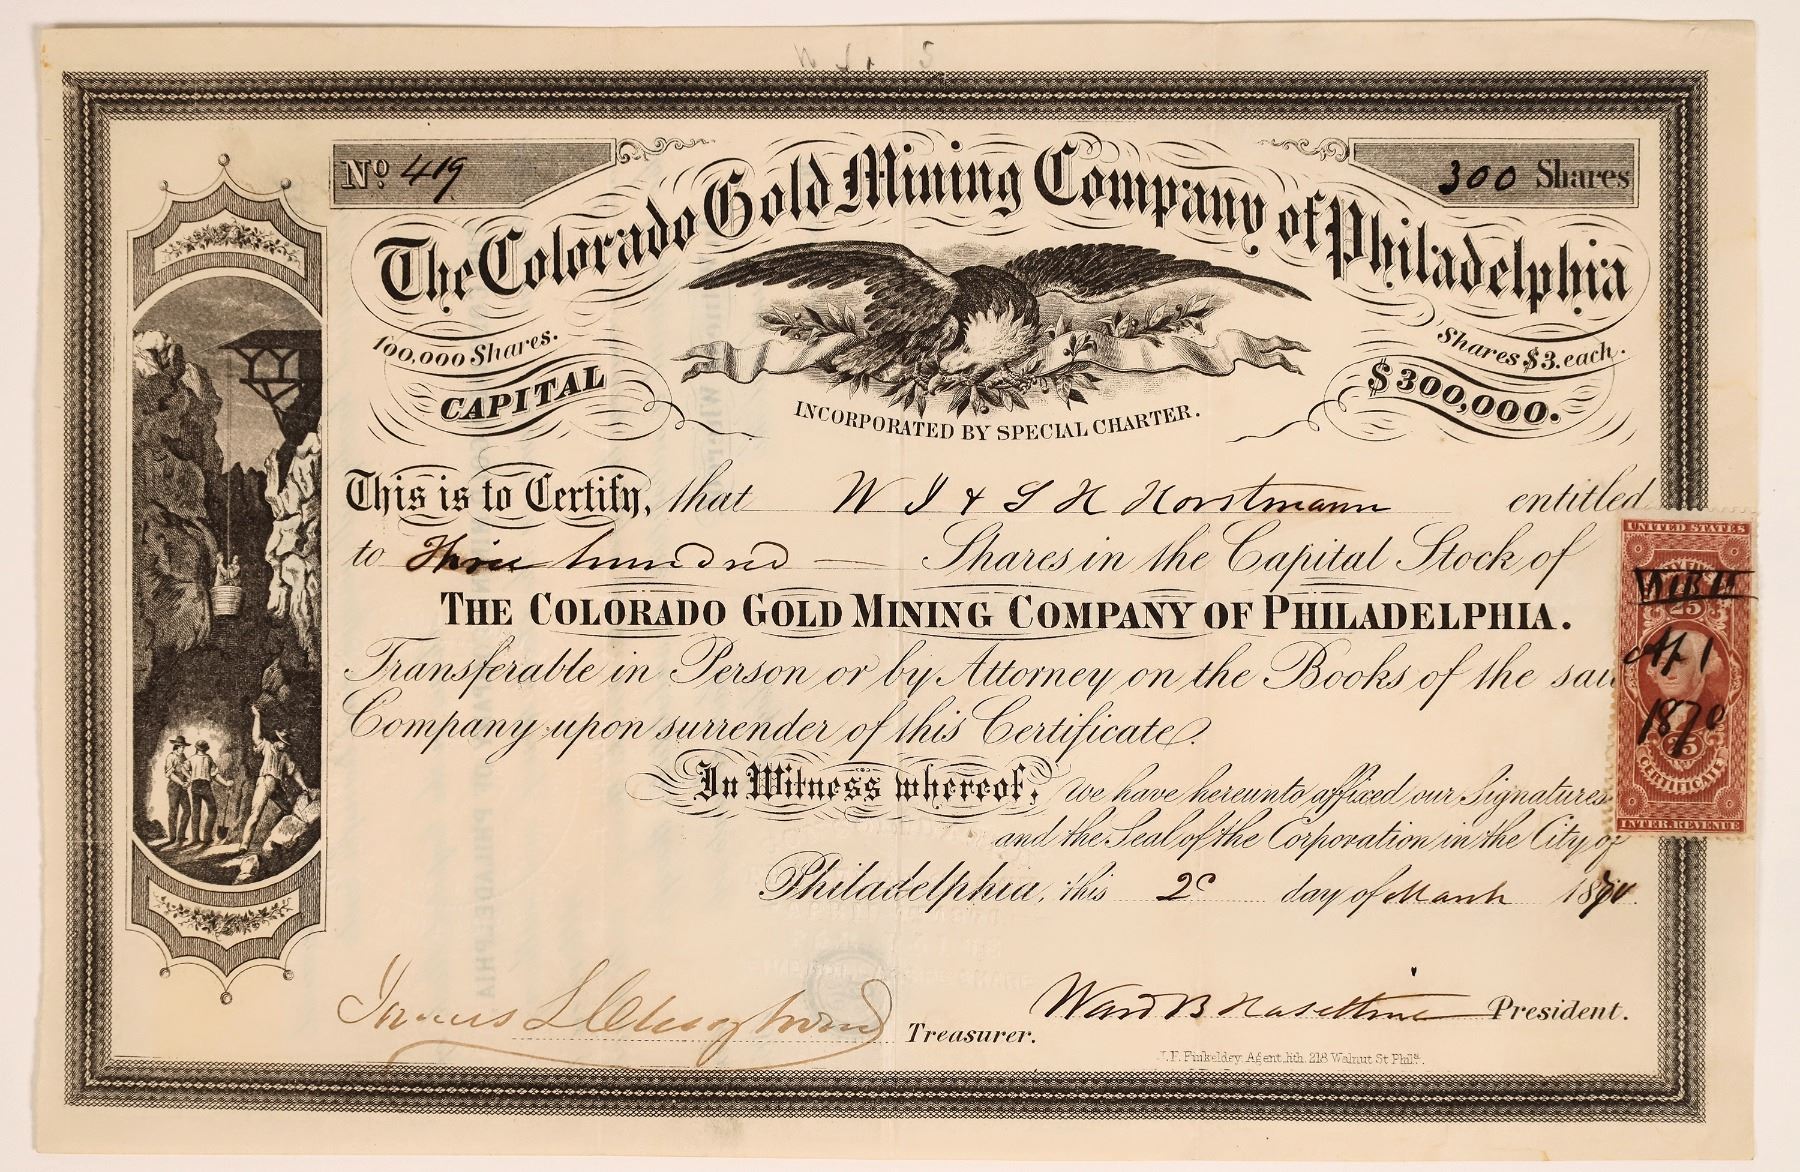 No 419
300 Shares
The Colorado Gold Mining Company of Philadelphia
100,000 Shares.
Shares $3. each.
CAPITAL
$300,000.
INCORPORATED BY SPECIAL CHARTER.
This is to Certify, that W J & S H Horstmann entitled
to Three hundred — Shares in the Capital Stock of
THE COLORADO GOLD MINING COMPANY OF PHILADELPHIA.
Transferable in Person or by Attorney on the Books of the said
Company upon surrender of this Certificate.
In Witness whereof, we have hereunto affixed our Signatures
and the Seal of the Corporation in the City of
Philadelphia, this 2d day of March 1870.
Treasurer.
Ward B Haseltine President.
J.F. Finkeldey, Agent, lith. 218 Walnut St Phila.
UNITED STATES
25
Ap 1
1870
25
CERTIFICATE
INTER. REVENUE